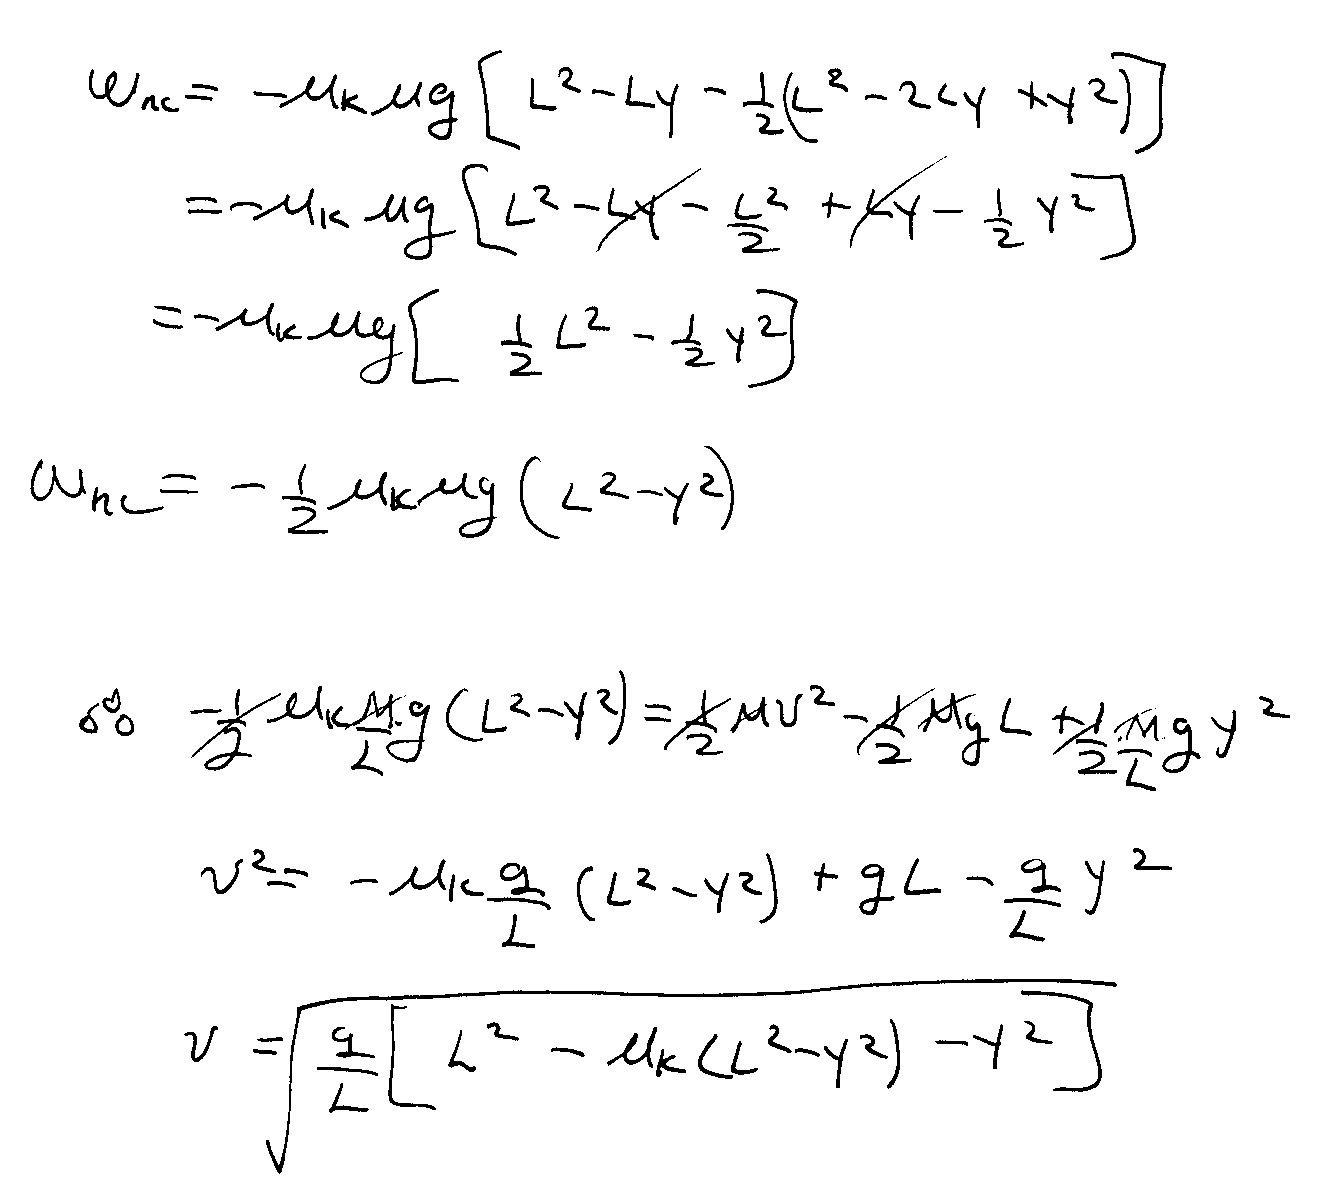 Wnc = -μk μg [L² - Ly - ½(L² - 2Ly + y²)]
= -μk μg [L² - Ly - L²/2 + Ly - ½ y²]
= -μk μg [½ L² - ½ y²]
Wnc = -½ μk μg (L² - y²)
∴ -½ μk M/L g (L² - y²) = ½ MV² - ½ Mg L + ½ M/L g y²
v² = -μk g/L (L² - y²) + gL - g/L y²
v = √(g/L [L² - μk (L² - y²) - y²])